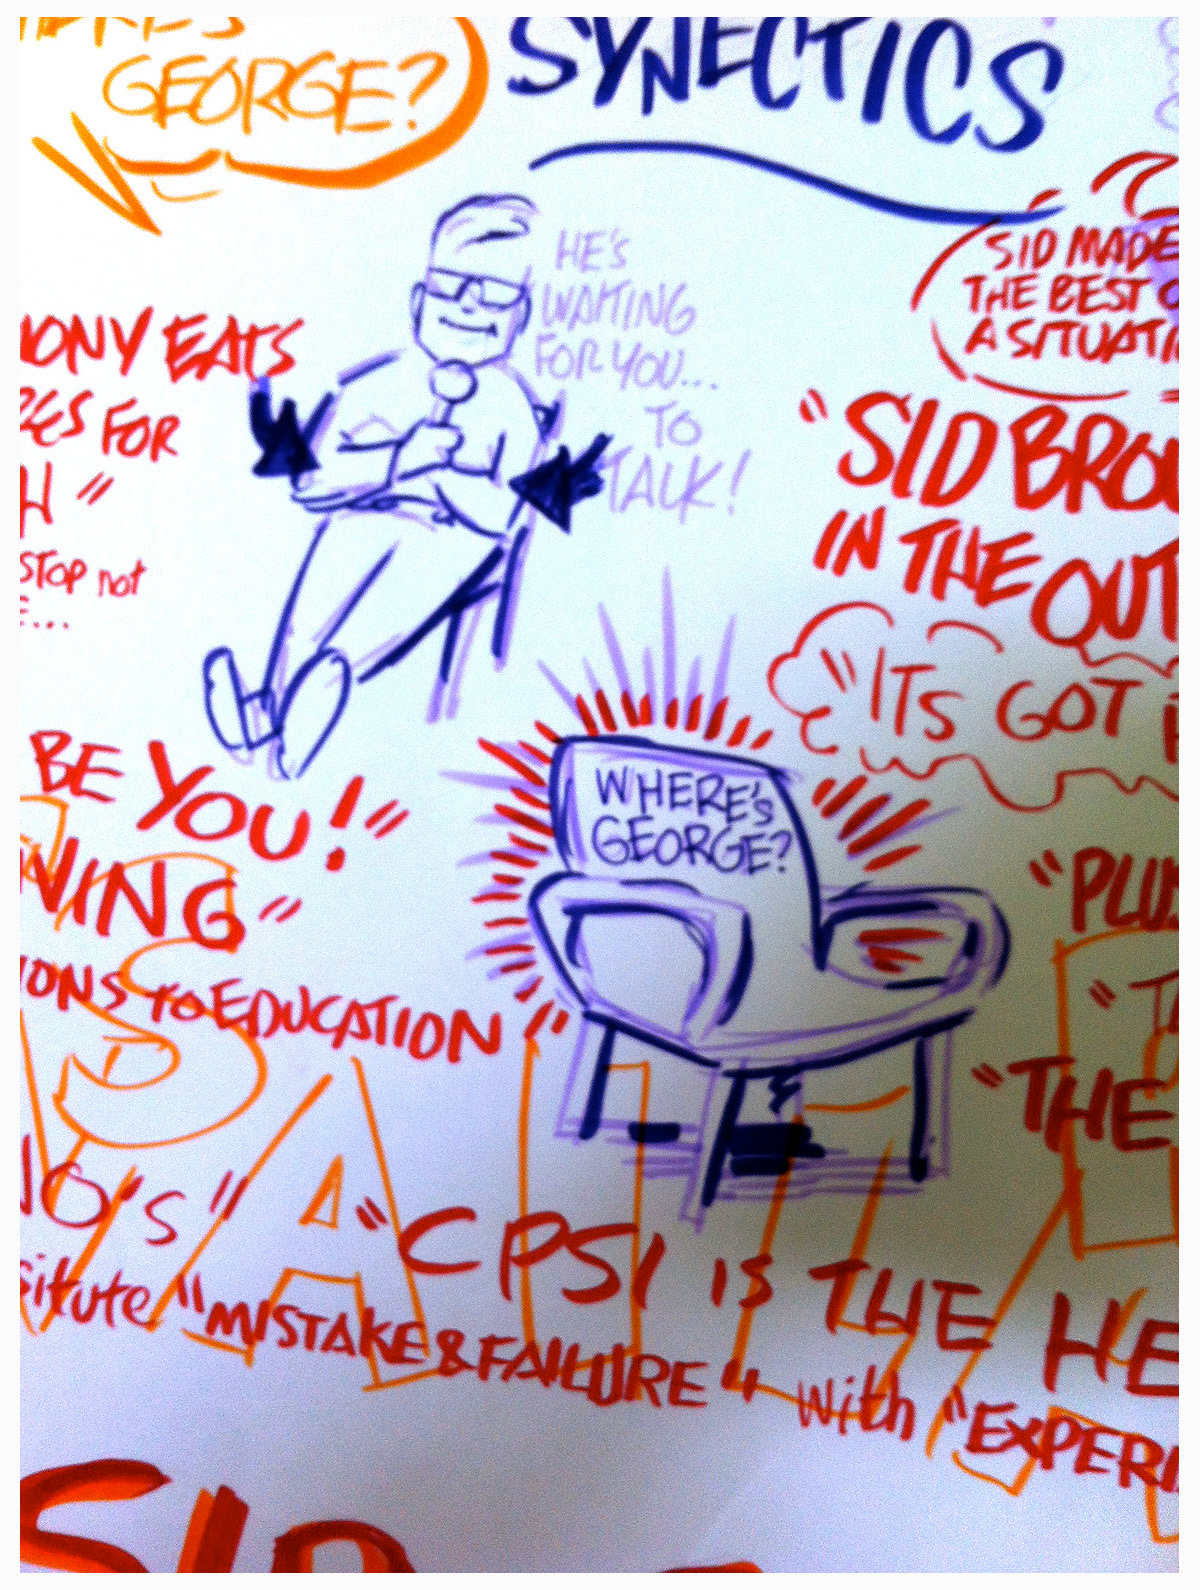 GEORGE?
SYNECTICS
HE'S
WAITING
FOR YOU...
TO
TALK!
SID MADE
THE BEST
A SITUATI
EATS
FOR
"
STOP not
...
"SID BROU
IN THE OUT
"ITS GOT
BE YOU!"
WHERE'S
GEORGE?
NING"
"PLUS
IONS TO EDUCATION"
"THE
NO'S"
"CPSI IS THE HE
situte "MISTAKE & FAILURE" with "EXPERI
SID